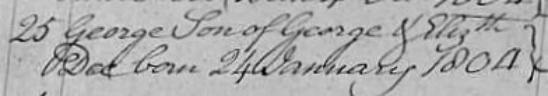 25 George Son of George & Elizth
Dec born 24 January 1804